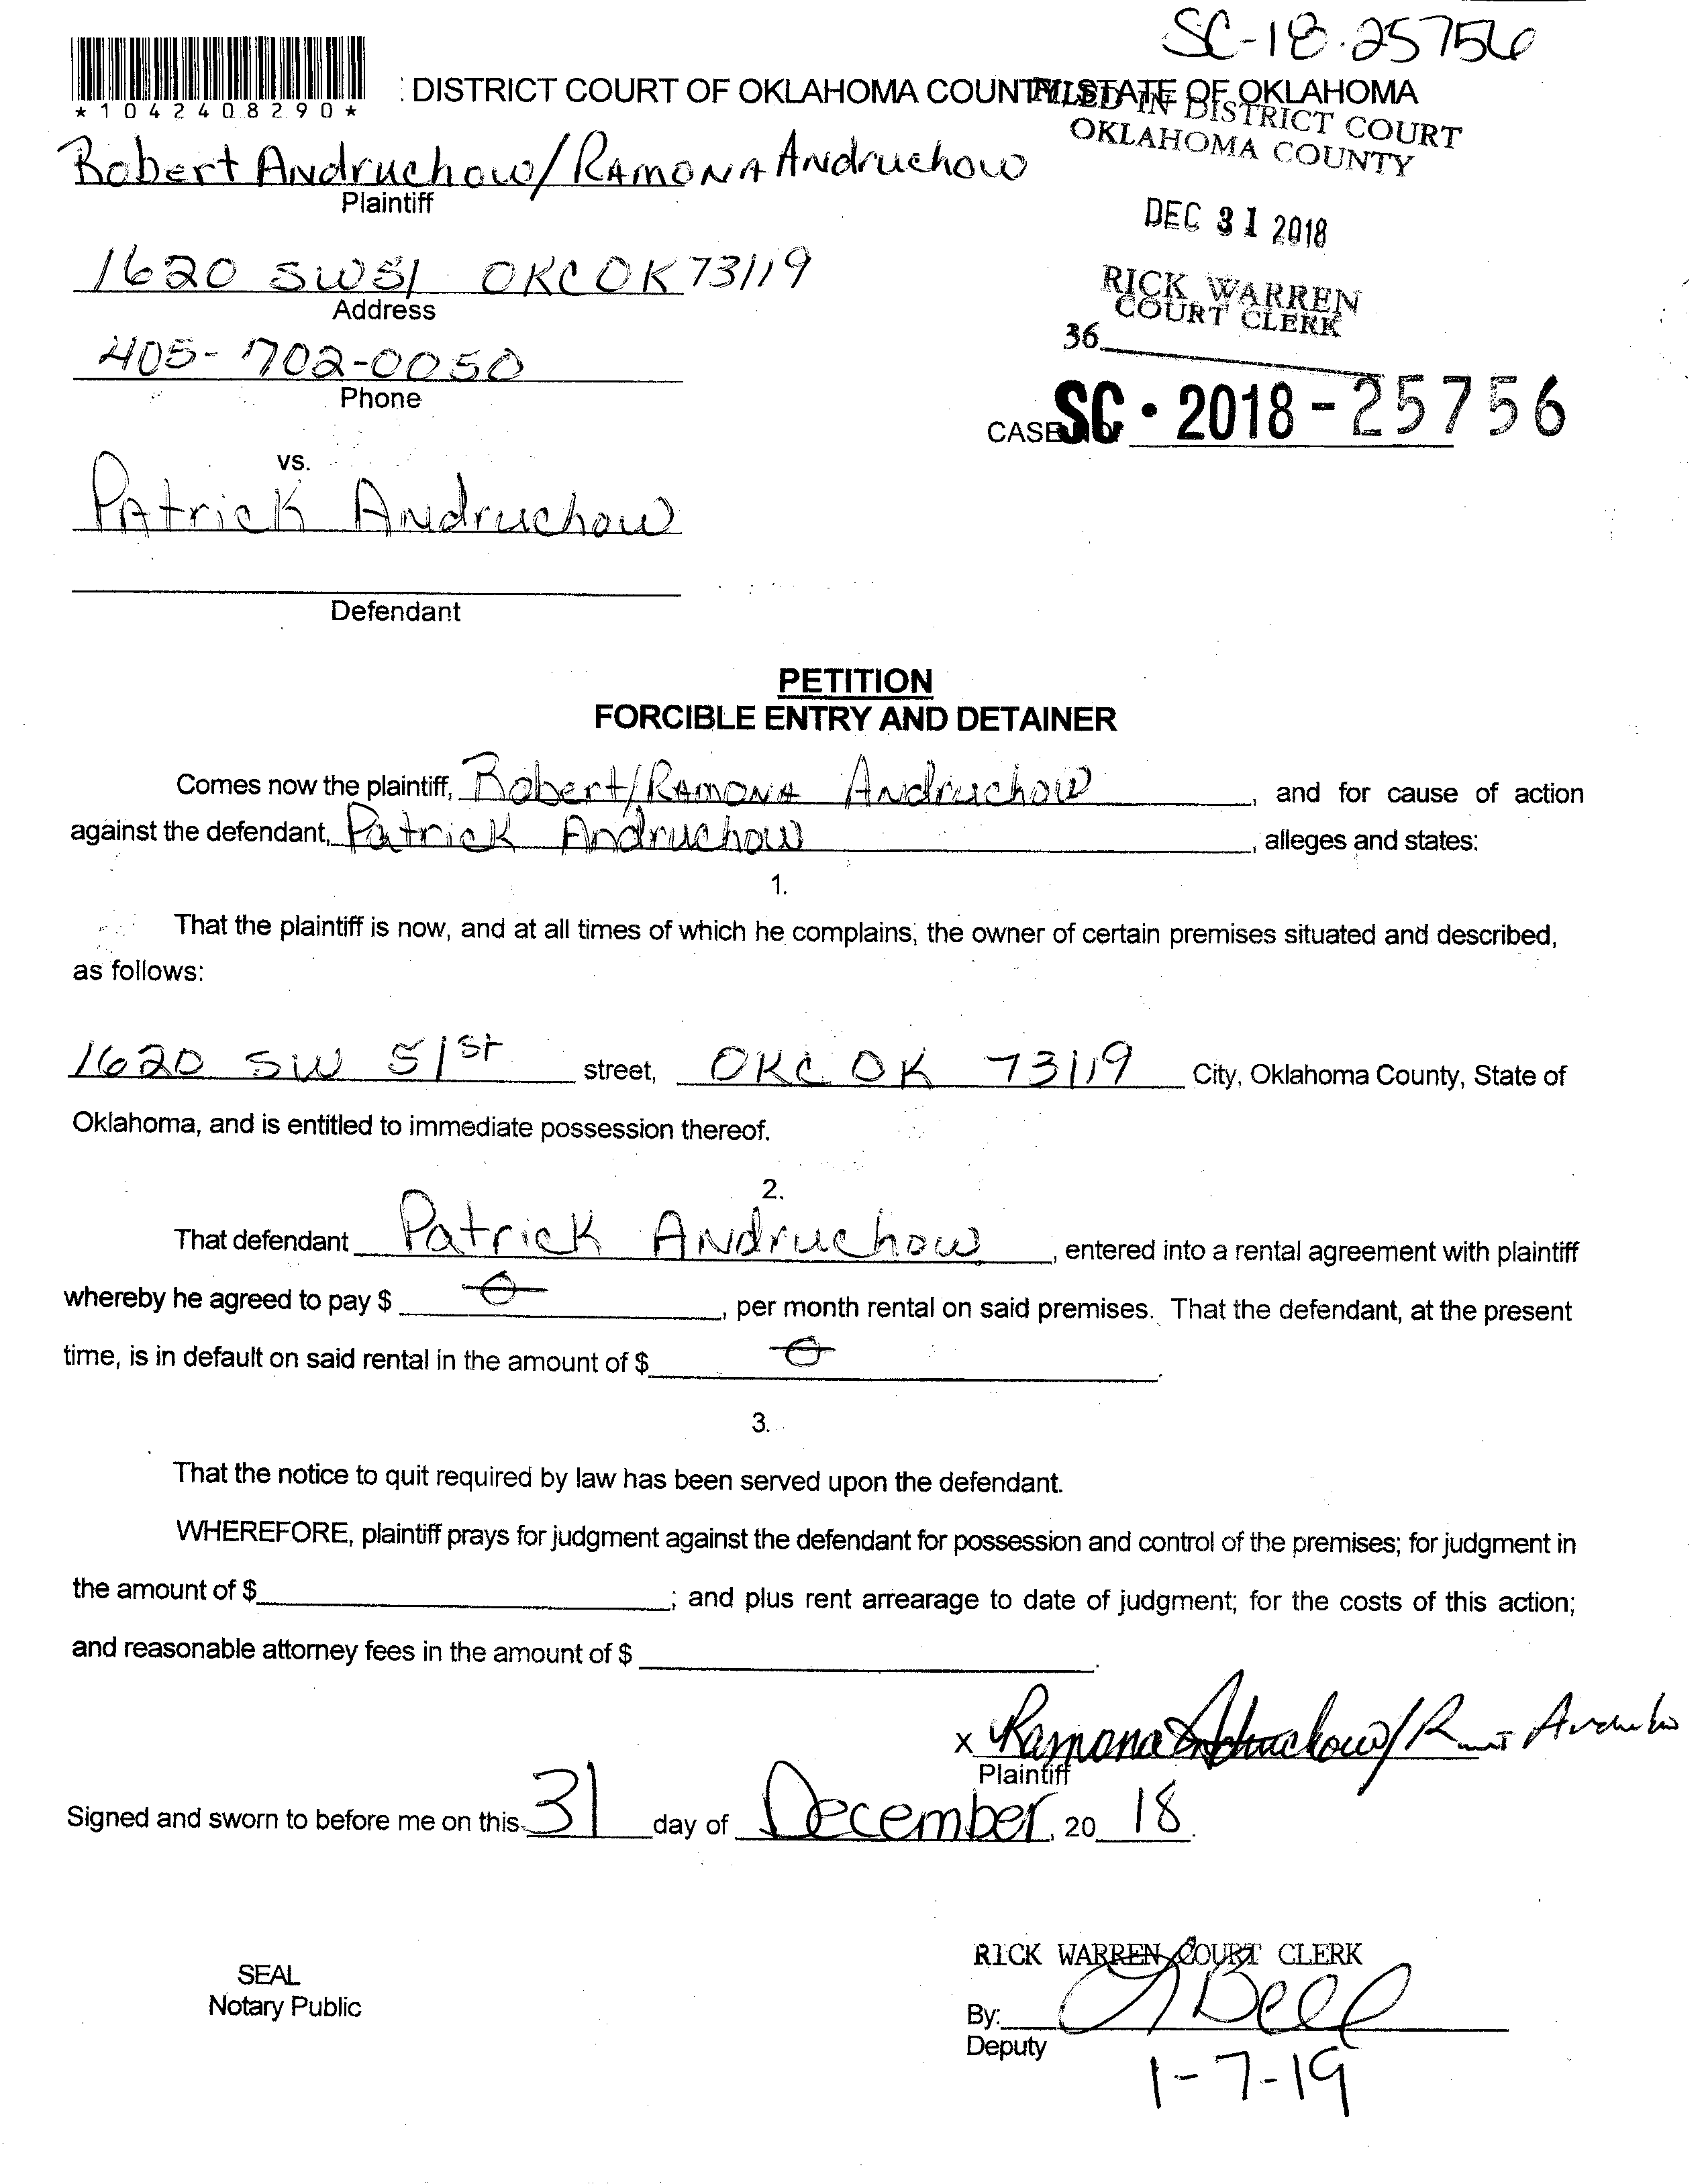 SC-18-25756
*1042408290*
: DISTRICT COURT OF OKLAHOMA COUNTY, STATE OF OKLAHOMA
FILED IN DISTRICT COURT
OKLAHOMA COUNTY
Robert Andruchow/RAMONA Andruchow
Plaintiff
DEC 31 2018
1620 SW51 OKC OK 73119
Address
RICK WARREN
COURT CLERK
36
405-702-0050
Phone
CASE NO. SC • 2018 - 25756
vs.
Patrick Andruchow
Defendant
PETITION
FORCIBLE ENTRY AND DETAINER
Comes now the plaintiff, Robert/RAMONA Andruchow, and for cause of action
against the defendant, Patrick Andruchow, alleges and states:
1.
That the plaintiff is now, and at all times of which he complains, the owner of certain premises situated and described,
as follows:
1620 SW 51st street, OKC OK 73119 City, Oklahoma County, State of
Oklahoma, and is entitled to immediate possession thereof.
2.
That defendant Patrick Andruchow, entered into a rental agreement with plaintiff
whereby he agreed to pay $ 0, per month rental on said premises. That the defendant, at the present
time, is in default on said rental in the amount of $ 0.
3.
That the notice to quit required by law has been served upon the defendant.
WHEREFORE, plaintiff prays for judgment against the defendant for possession and control of the premises; for judgment in
the amount of $ ; and plus rent arrearage to date of judgment; for the costs of this action;
and reasonable attorney fees in the amount of $ .
x Ramona Andruchow/
Plaintiff
Signed and sworn to before me on this 31 day of December, 20 18.
RICK WARREN COURT CLERK
SEAL
Notary Public
By: Bell
Deputy
1-7-19